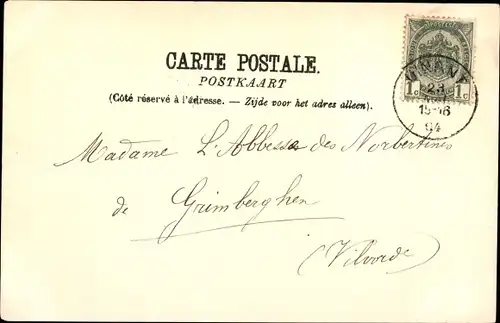 CARTE POSTALE.
POSTKAART
(Côté réservé à l'adresse. — Zijde voor het adres alleen).
1c 1c
23
15-16
Madame L'Abbesse des Norbertines
de
Grimberghen
(Vilvorde)